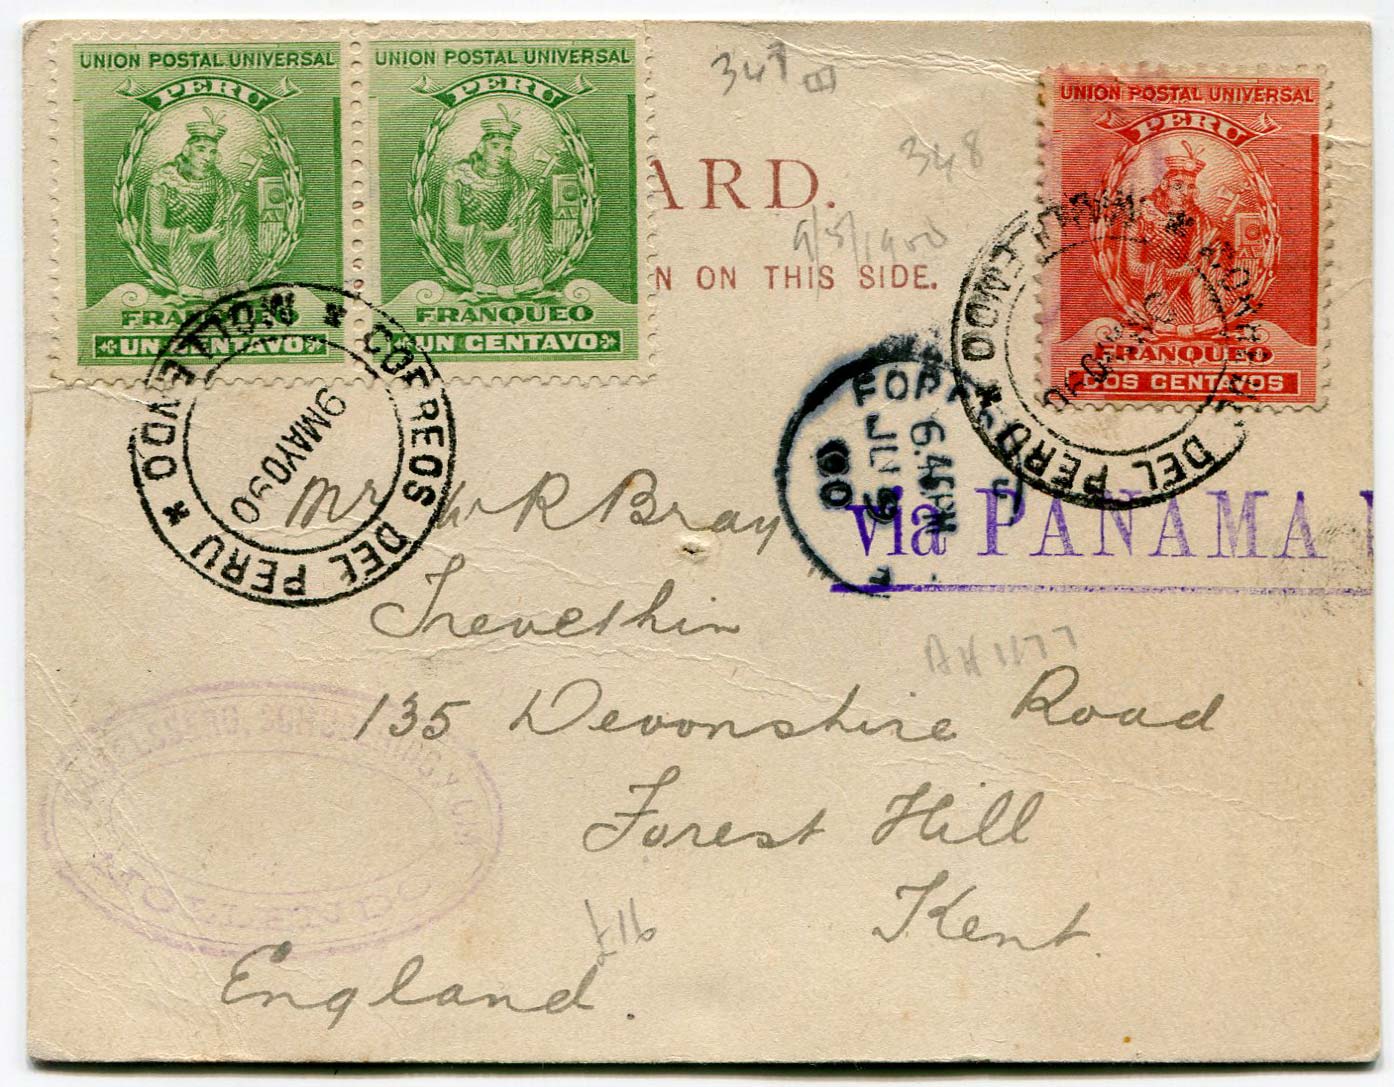 UNION POSTAL UNIVERSAL
PERU
FRANQUEO
UN CENTAVO
UNION POSTAL UNIVERSAL
PERU
FRANQUEO
UN CENTAVO
347 III
348
ARD.
9/5/1900
N ON THIS SIDE.
UNION POSTAL UNIVERSAL
PERU
FRANQUEO
DOS CENTAVOS
CORREOS DEL PERU * MOLLENDO *
9 MAYO 90
DEL PERU *
6.45PM
JU 9
00
via PANAMA
Mr W R Bray
Trevethin
AH1177
135 Devonshire Road
Forest Hill
Kent.
£16
England.
MOLLENDO